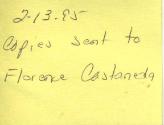 2-13-95
Copies sent to
Florence Castaneda